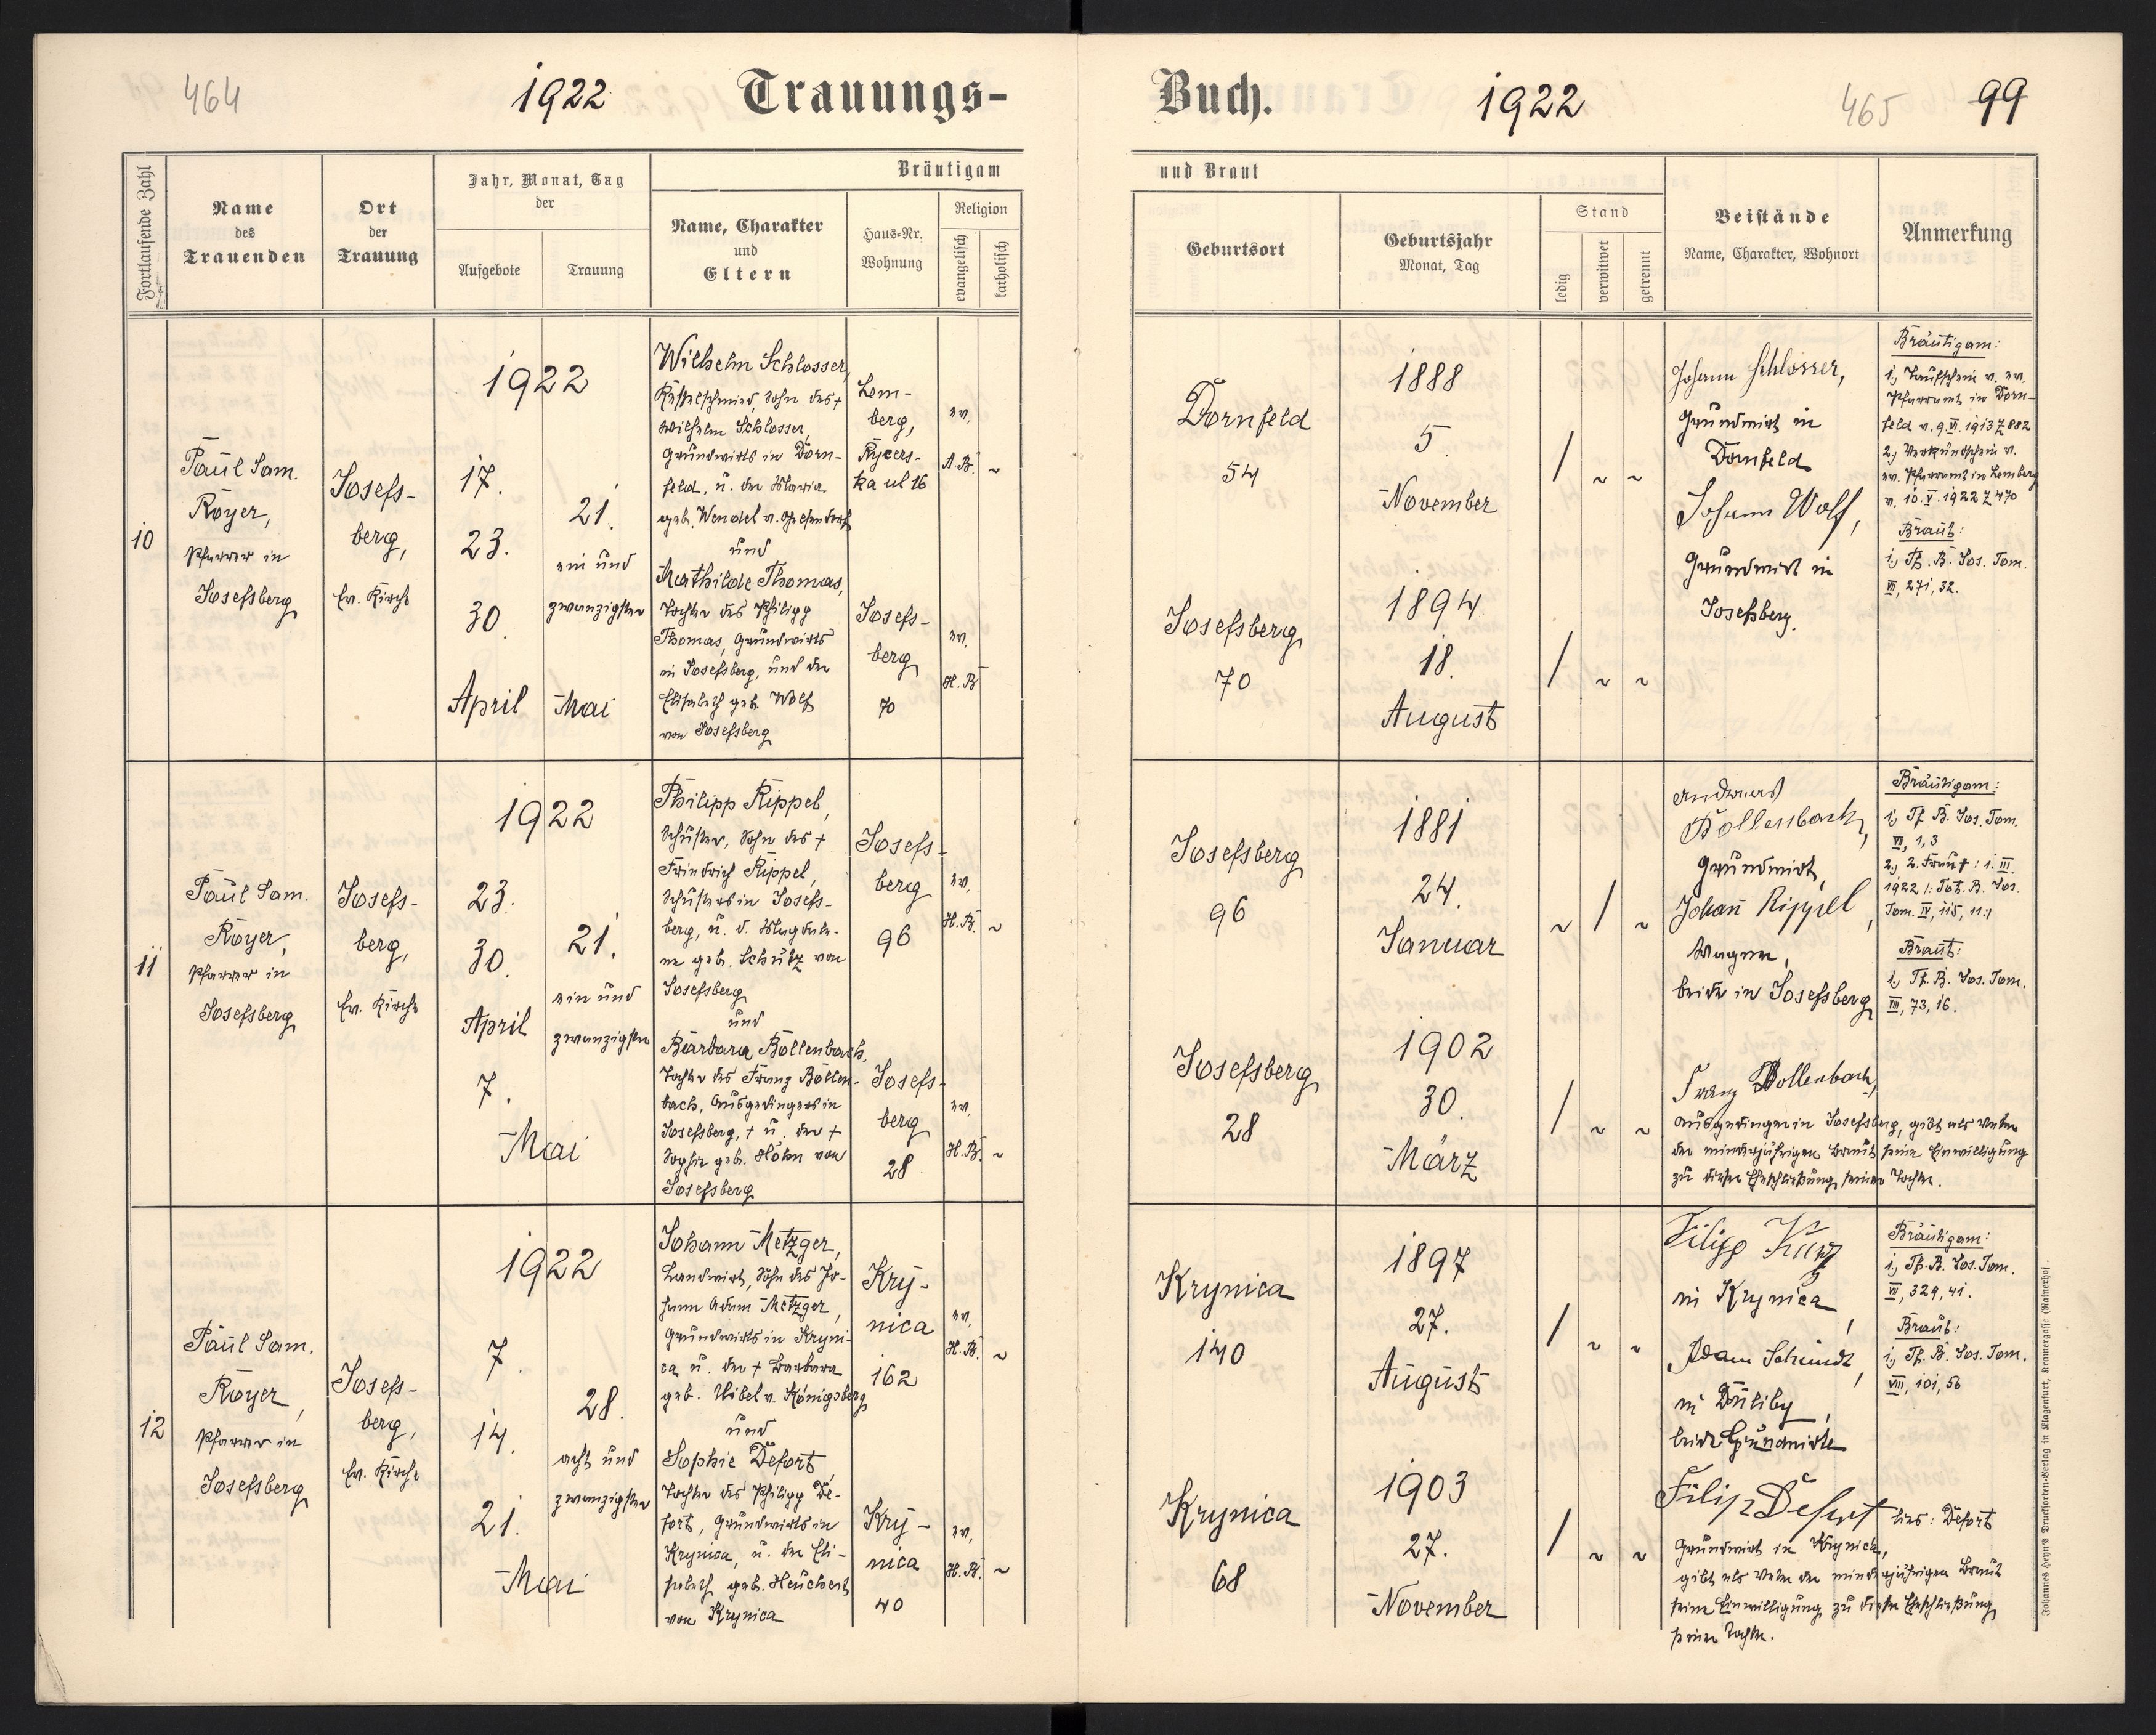 464
1922
Trauungs-
Buch.
1922
465
99
Fortlaufende Zahl
Name
des
Trauenden
Ort
der
Trauung
Jahr, Monat, Tag
der
Aufgebote
Trauung
Bräutigam
Name, Charakter
und
Eltern
Haus-Nr.
Wohnung
Religion
evangelisch
katholisch
und Braut
Geburtsort
Geburtsjahr
Monat, Tag
Stand
ledig
verwitwet
getrennt
Beistände
Name, Charakter, Wohnort
Anmerkung
10
Paul Sam.
Royer,
Pfarrer in
Josefsberg
Josefs-
berg,
Ev. Kirche
1922
17.
23.
30.
April
21.
ein und
zwanzigster
Mai
Wilhelm Schlosser,
Kesselschmied, Sohn des +
Wilhelm Schlosser,
Grundwirts in Dorn-
feld, u. der Maria
geb. Wendel v.
und
Mathilde Thomas,
Tochter des Philipp
Thomas, Grundwirts
in Josefsberg, und der
Elisabeth geb. Wolf
von Josefsberg
Lem-
berg,
Rycers-
ka ul 16
ev.
A.B. ~
Josefs-
berg
70
ev.
H.B
Dornfeld
54
1888
5.
November
/ ~ ~
Josefsberg
70
1894
18.
August
/ ~ ~
Johann Schlosser,
Grundwirt in
Dornfeld
Johann Wolf,
Grundwirt in
Josefsberg.
Bräutigam:
1., Taufschein v. ev.
Pfarramt in Dorn-
feld v. 9.VI.1913 Z 882
2., Verkündschein v.
ev. Pfarramt in Lemberg
v. 10.V.1922 Z 470
Braut:
1., Tf. B. Jos. Tom.
VI, 271, 32.
11
Paul Sam.
Royer,
Pfarrer in
Josefsberg
Josefs-
berg,
Ev. Kirche
1922
23.
30.
April
7.
Mai
21.
ein und
zwanzigster
Philipp Rippel,
Schuster, Sohn des +
Friedrich Rippel,
Schusters in Josefs-
berg, u. d. Magdale-
ne geb. Schütz von
Josefsberg
und
Barbara Bollenbach,
Tochter des Franz Bollen-
bach, Ausgedingers in
Josefsberg, + u. der +
Sophie geb. Höhn von
Josefsberg
Josefs-
berg
96
ev.
H.B. ~
Josefs-
berg
28
ev.
H.B. ~
Josefsberg
96
1881
24.
Januar
~ / ~
Josefsberg
28
1902
30.
März
/ ~ ~
Andreas
Bollenbach,
Grundwirt,
Johann Rippel,
Wagner,
beide in Josefsberg
Franz Bollenbach,
Ausgedinger in Josefsberg, gibt als Vater
der minderjährigen Braut seine Einwilligung
zu dieser Eheschließung seiner Tochter.
Bräutigam:
1., Tf. B. Jos. Tom.
VI, 1, 3
2., 2. Frau +: 1. III.
1922 /: Tot. B. Jos.
Tom. IV, 115, 11:/
Braut:
1., Tf. B. Jos. Tom.
VIII, 73, 16.
12
Paul Sam.
Royer,
Pfarrer in
Josefsberg
Josefs-
berg,
Ev. Kirche
1922
7.
14.
21.
Mai
28.
acht und
zwanzigster
Johann Metzger,
Landwirt, Sohn des Jo-
hann Adam Metzger,
Grundwirts in Kryni-
ca u. der + Barbara
geb. Uibel v. Königsberg
und
Sophie Defort
Tochter des Philipp De-
fort, Grundwirts in
Krynica, u. der Eli-
sabeth geb. Heuchert
von Krynica
Kry-
nica
162
ev.
H.B. ~
Kry-
nica
40
ev.
H.B. ~
Krynica
140
1897
27.
August
/ ~ ~
Krynica
68
1903
27.
November
/ ~ ~
Filipp Kurz
in Krynica,
Adam Schmidt,
in Duliby,
beide Grundwirte
Filip Defort lies: Defort
Grundwirt in Krynica,
gibt als Vater der minderjährigen Braut
seine Einwilligung zu dieser Eheschließung
seiner Tochter.
Bräutigam:
1., Tf. B. Jos. Tom.
VI, 329, 41.
Braut:
1., Tf. B. Jos. Tom.
VIII, 101, 56
Johannes Heyn's Drucksorten-Verlag in Klagenfurt, Kramergasse (Rainerhof).